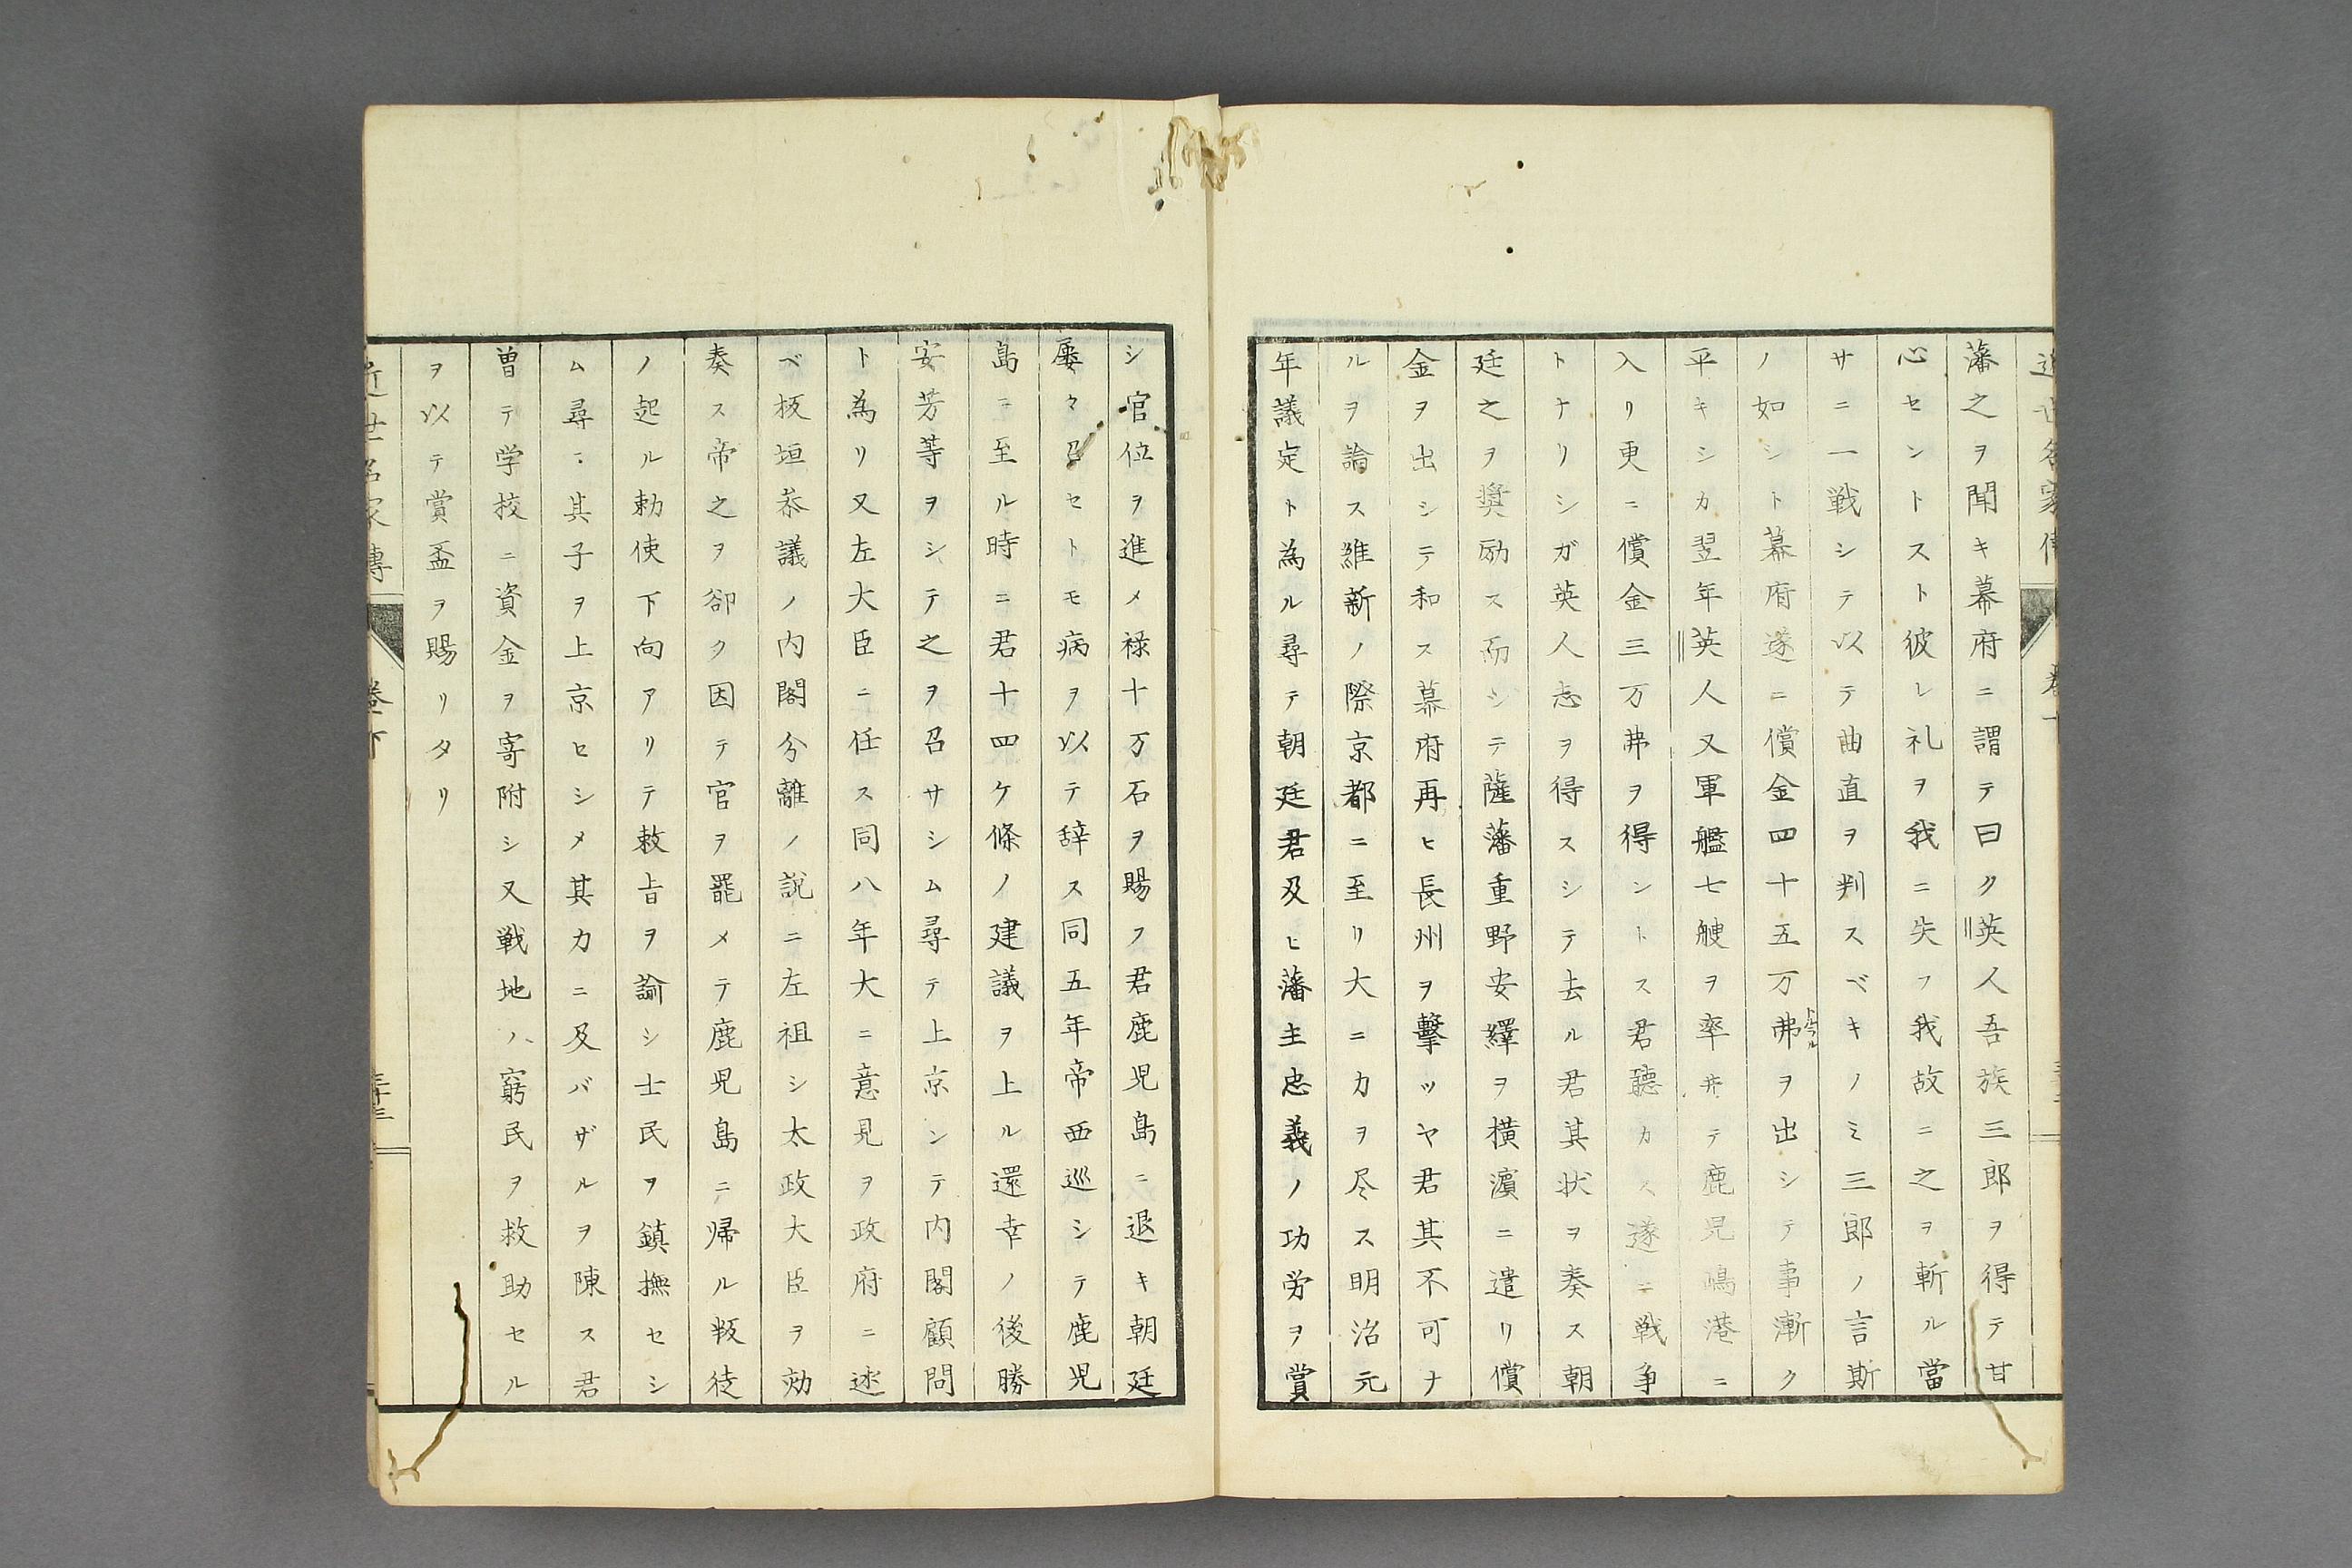 藩之ヲ聞キ幕府ニ謂テ曰ク英人吾族三郎ヲ得テ甘
心セントスト彼レ礼ヲ我ニ失フ我故ニ之ヲ斬ル當
サニ一戦シテ以テ曲直ヲ判スベキノミ三郎ノ言斯
ノ如シト幕府遂ニ償金四十五万弗ヲ出シテ事漸ク
ドルラル
平キシカ翌年英人又軍艦七艘ヲ率井テ鹿児嶋港ニ
入リ更ニ償金三万弗ヲ得ントス君聽カス遂ニ戦争
トナリシガ英人志ヲ得スシテ去ル君其状ヲ奏ス朝
廷之ヲ奨励ス而シテ薩藩重野安繹ヲ横濵ニ遣リ償
金ヲ出シテ和ス幕府再ヒ長州ヲ擊ツヤ君其不可ナ
ルヲ論ス維新ノ際京都ニ至リ大ニカヲ尽ス明治元
年議定ト為ル尋テ朝廷君及ヒ藩主忠義ノ功労ヲ賞
シ官位ヲ進メ禄十万石ヲ賜フ君鹿児島ニ退キ朝廷
屡々召セトモ病ヲ以テ辞ス同五年帝西巡シテ鹿児
島ニ至ル時ニ君十四ケ條ノ建議ヲ上ル還幸ノ後勝
安芳等ヲシテ之ヲ召サシム尋テ上京ンテ内閣顧問
ト為リ又左大臣ニ任ス同八年大ニ意見ヲ政府ニ述
ベ板垣参議ノ内閣分離ノ説ニ左祖シ太政大臣ヲ劾
奏ス帝之ヲ卻ク因テ官ヲ罷メテ鹿児島ニ帰ル叛徒
ノ起ル勅使下向アリテ敕旨ヲ諭シ士民ヲ鎮撫セシ
ム尋ニ其子ヲ上京セシメ其力ニ及バザルヲ陳ス君
曽テ学校ニ資金ヲ寄附シ又戦地ノ窮民ヲ救助セル
ヲ以テ賞盃ヲ賜リタリ
近世名家傳